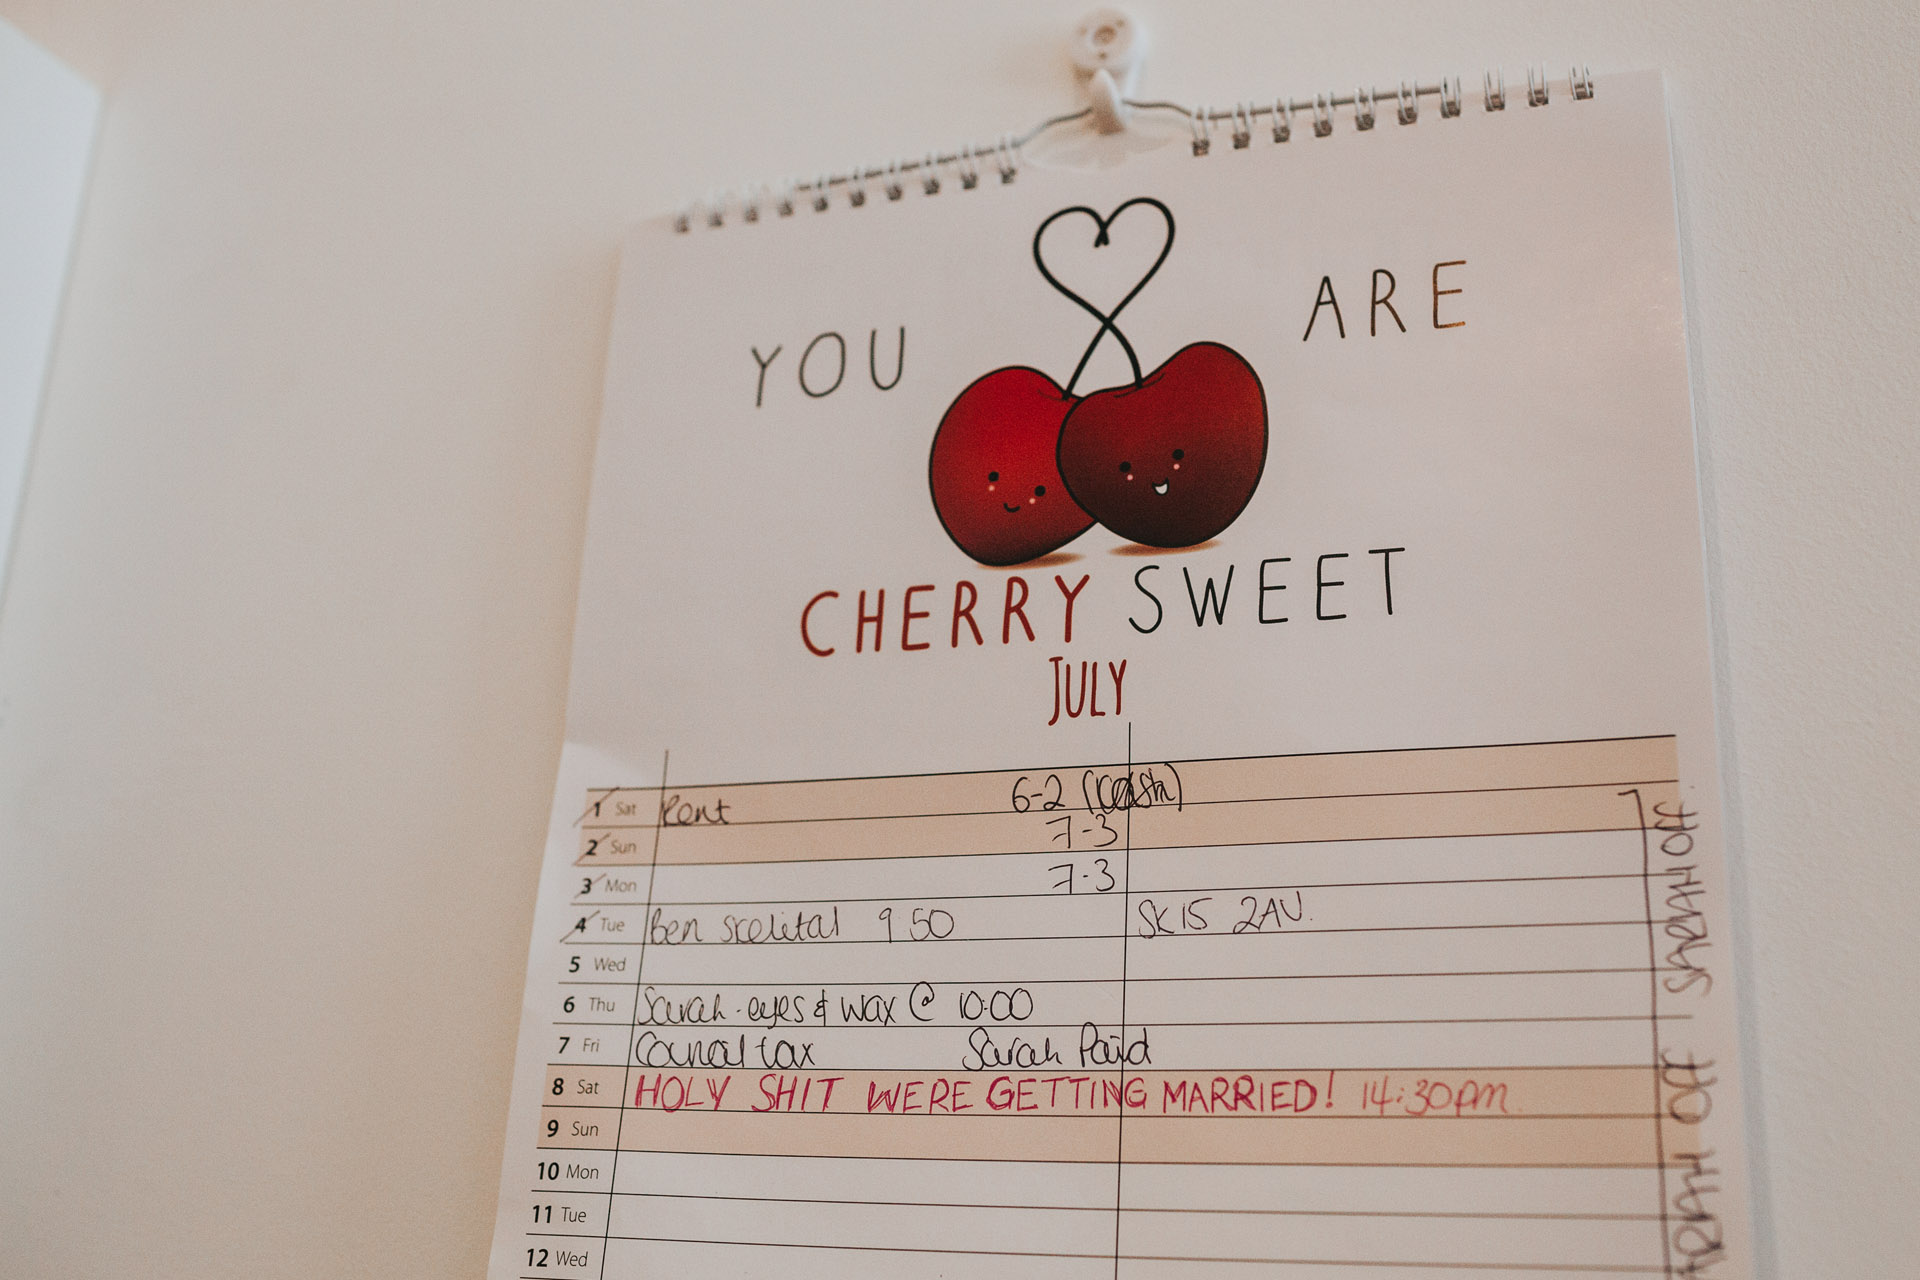 YOU ARE
CHERRY SWEET
JULY
1 Sat Rent 6-2 (cash)
2 Sun 7-3
3 Mon 7-3
4 Tue Ben skeletal 9 50 SK15 2AU.
5 Wed
6 Thu Sarah - eyes & wax @ 10:00
7 Fri Council tax Sarah Paid
8 Sat HOLY SHIT WERE GETTING MARRIED! 14:30pm
9 Sun
10 Mon
11 Tue
12 Wed
SARAH OFF | SARAH OFF.